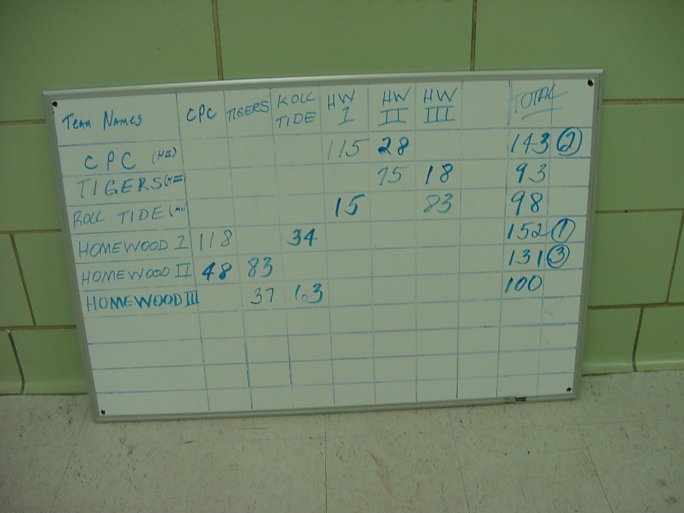 TEAM NAMES CPC TIGERS ROLL TIDE HW I HW II HW III TOTAL
CPC 115 28 143 ②
TIGERS 75 18 93
ROLL TIDE 15 83 98
HOMEWOOD I 118 34 152 ①
HOMEWOOD II 48 83 131 ③
HOMEWOOD III 37 63 100